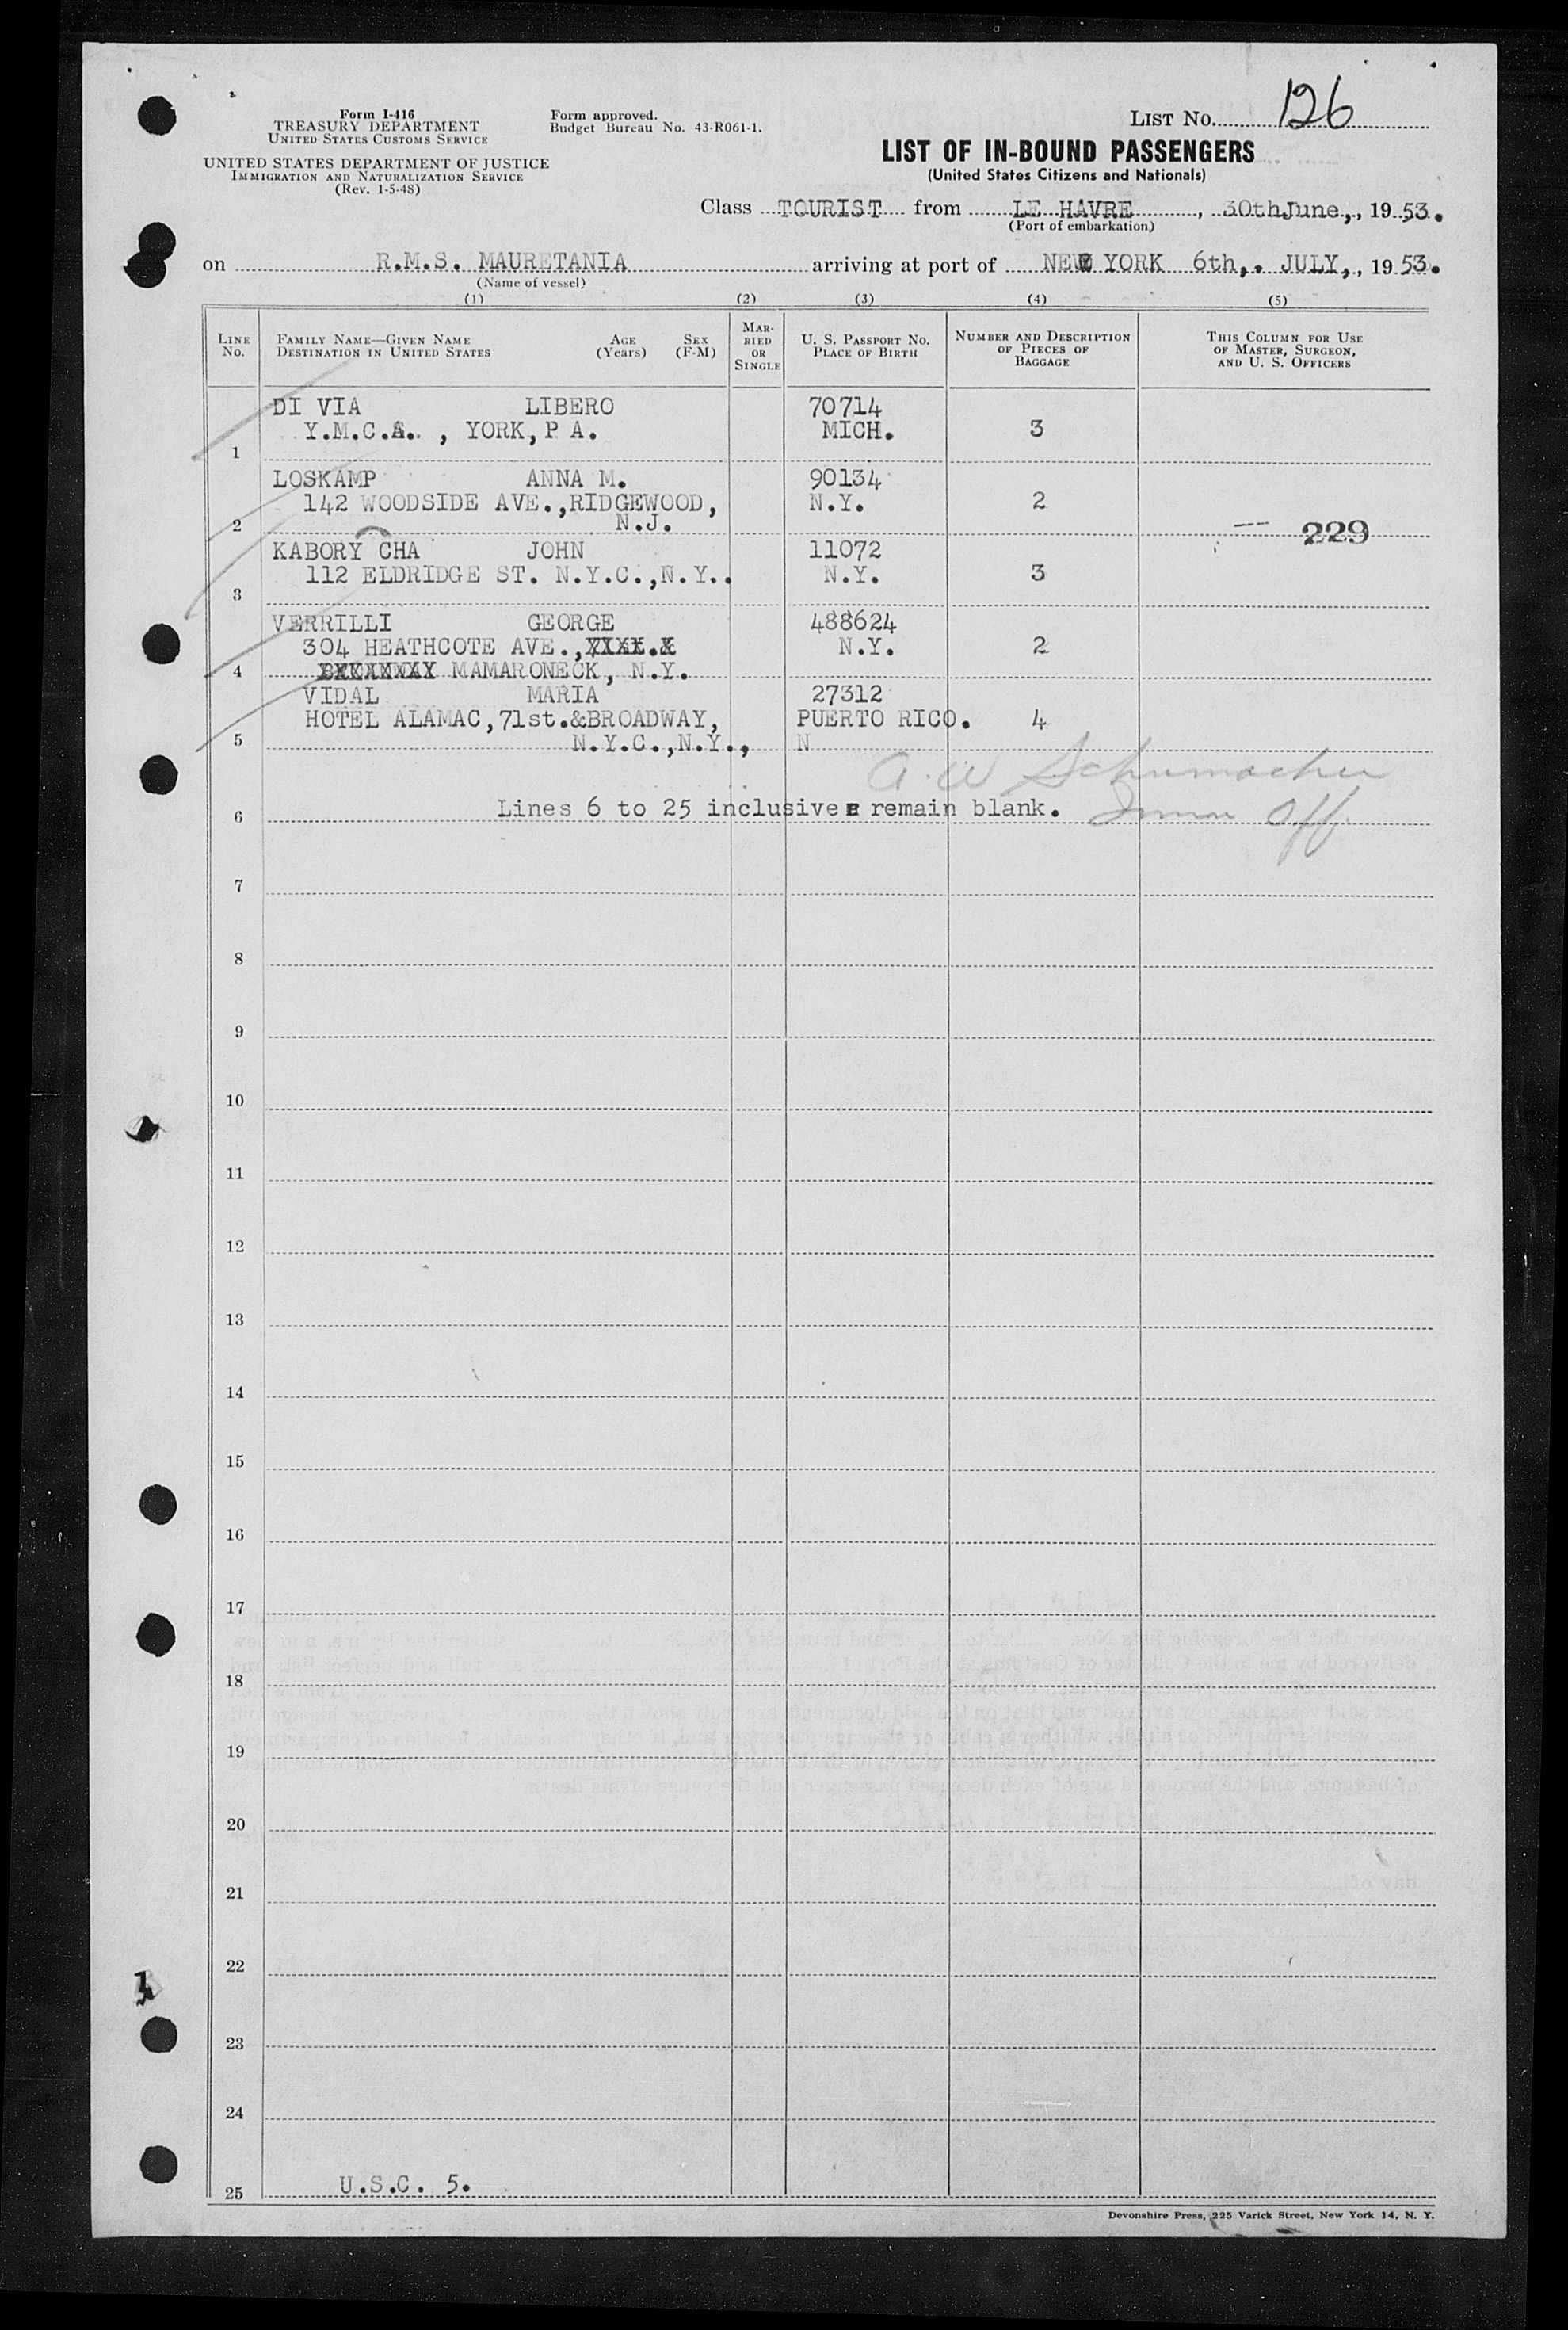 Form I-416
TREASURY DEPARTMENT
UNITED STATES CUSTOMS SERVICE
UNITED STATES DEPARTMENT OF JUSTICE
IMMIGRATION AND NATURALIZATION SERVICE
(Rev. 1-5-48)
Form approved.
Budget Bureau No. 43-R061-1.
LIST No. 126
LIST OF IN-BOUND PASSENGERS
(United States Citizens and Nationals)
Class TOURIST from LE HAVRE, 30th June,, 1953.
(Port of embarkation)
on R.M.S. MAURETANIA arriving at port of NEW YORK 6th,. JULY,, 1953.
(Name of vessel)
(1) (2) (3) (4) (5)
LINE No. FAMILY NAME—GIVEN NAME DESTINATION IN UNITED STATES AGE (Years) SEX (F-M) MARRIED OR SINGLE U. S. PASSPORT NO. PLACE OF BIRTH NUMBER AND DESCRIPTION OF PIECES OF BAGGAGE THIS COLUMN FOR USE OF MASTER, SURGEON, AND U. S. OFFICERS
DI VIA LIBERO 70714
Y.M.C.A. , YORK,P A. MICH. 3
1
LOSKAMP ANNA M. 90134
142 WOODSIDE AVE.,RIDGEWOOD, N.Y. 2
2 N.J. 229
KABORY CHA JOHN 11072
112 ELDRIDGE ST. N.Y.C.,N.Y.. N.Y. 3
3
VERRILLI GEORGE 488624
304 HEATHCOTE AVE., N.Y. 2
4 MAMARONECK, N.Y.
VIDAL MARIA 27312
HOTEL ALAMAC,71st.&BROADWAY, PUERTO RICO. 4
5 N.Y.C.,N.Y., N
A. W Schumacher
Lines 6 to 25 inclusive remain blank. Imm Off
6
7
8
9
10
11
12
13
14
15
16
17
18
19
20
21
22
23
24
25 U.S.C. 5.
Devonshire Press, 225 Varick Street, New York 14, N. Y.